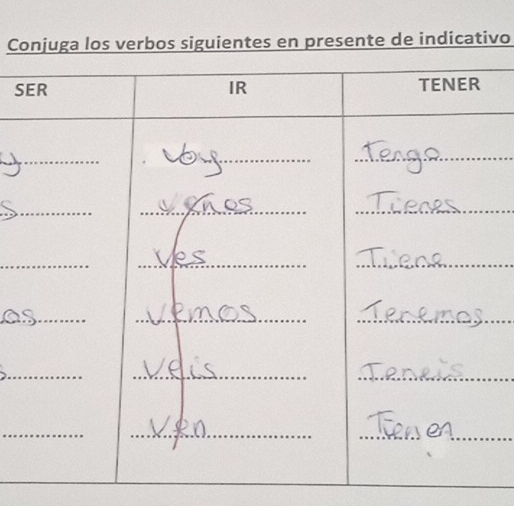 Conjuga los verbos siguientes en presente de indicativo
SER IR TENER
y voy Tengo
s venes Tienes
ves Tiene
os vemos Tenemos
s veis Teneis
ven Tienen